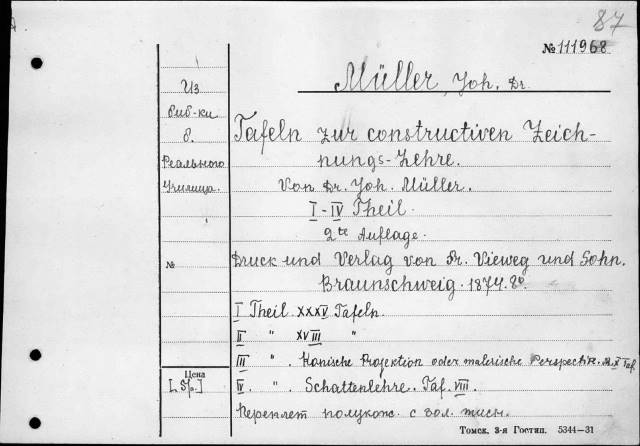 87
№ 111968
Müller, Joh. Dr.
Из
биб-ки
б.
Реального
Училища.
Tafeln zur constructiven Zeich-
nungs-Lehre.
Von Dr. Joh. Müller.
I-IV Theil.
2te Auflage.
№
Druck und Verlag von Fr. Vieweg und Sohn.
Braunschweig. 1874.80.
I Theil XXXV Tafeln.
II " XVIII "
III " . Konische Projektion oder malerische Perspectiv. X Taf.
Цена
IV. " . Schattenlehre. Taf. VIII.
Переплет полукож. с зол. тисн.
Томск. 3-я Гостип. 5344—31